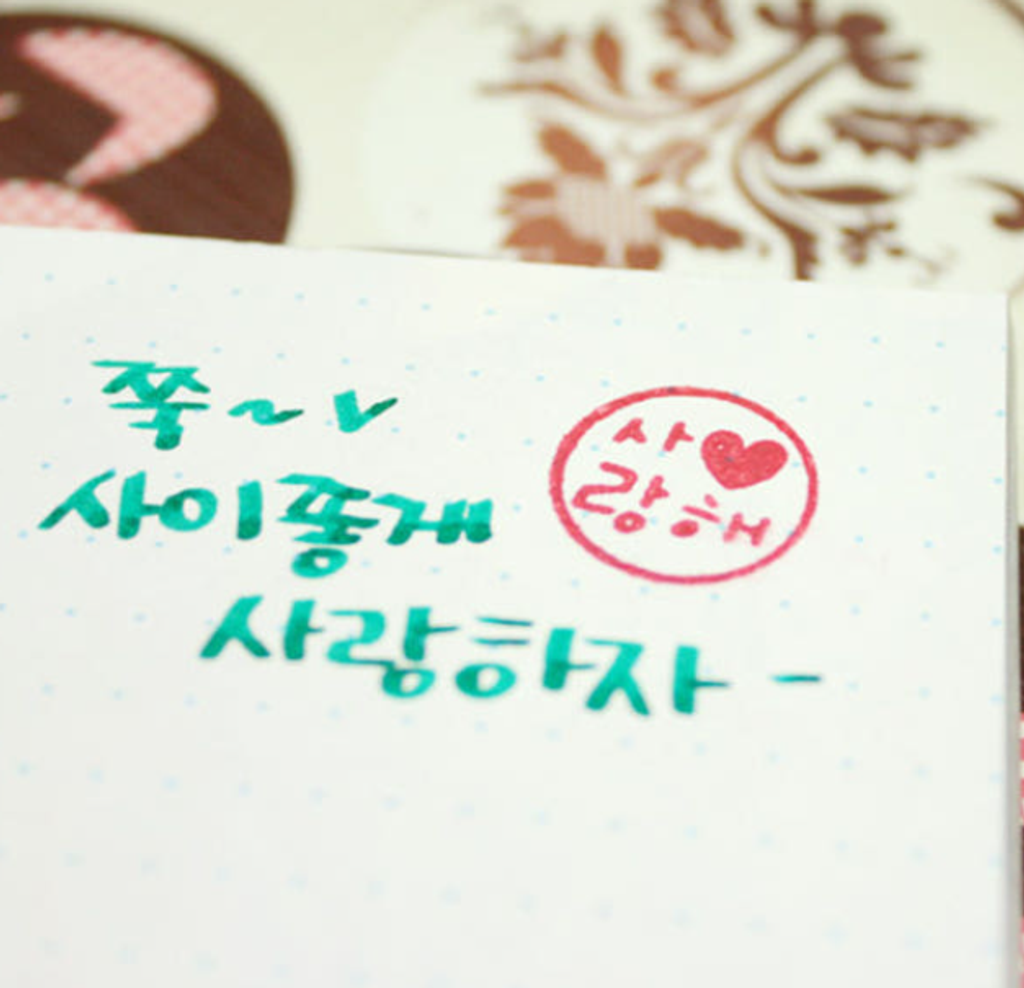 쭉~✓
사이좋게
사랑하자-
사♥
랑해